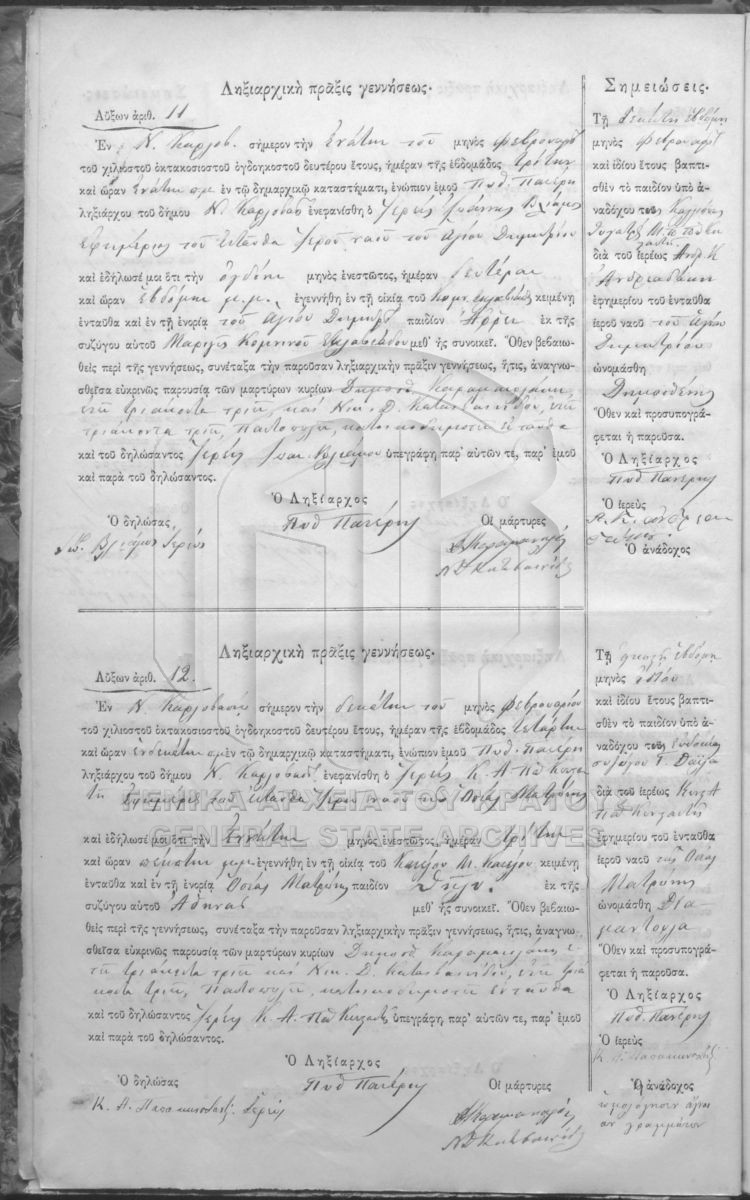 Ληξιαρχικὴ πρᾶξις γεννήσεως.
Αὔξων ἀριθ. 11
Ἐν Ν. Καρλοβ. σήμερον τὴν ἐνάτην τοῦ μηνὸς Φεβρουαρίου
τοῦ χιλιοστοῦ ὀκτακοσιοστοῦ ὀγδοηκοστοῦ δευτέρου ἔτους, ἡμέραν τῆς ἑβδομάδος τρίτην
καὶ ὥραν ἐνάτην π.μ. ἐν τῷ δημαρχικῷ καταστήματι, ἐνώπιον ἐμοῦ Πυθ. Πατέρη
ληξιάρχου τοῦ δήμου Ν. Καρλοβασ. ἐνεφανίσθη ὁ Ἱερεὺς Ἰωάννης Βλιάμος
Ἐφημέριος τοῦ ἐνταῦθα Ἱεροῦ ναοῦ τοῦ Ἁγίου Δημητρίου
καὶ ἐδήλωσέ μοι ὅτι τὴν ὀγδόην μηνὸς ἐνεστῶτος, ἡμέραν δευτέραν
καὶ ὥραν ἑβδόμην μ.μ. ἐγεννήθη ἐν τῇ οἰκίᾳ τοῦ κειμένῃ
ἐνταῦθα καὶ ἐν τῇ ἐνορίᾳ τοῦ Ἁγίου Δημητρ. παιδίον Ἄρρεν ἐκ τῆς
συζύγου αὐτοῦ Μαριγὼς Κομνηνοῦ μεθ' ἧς συνοικεῖ. Ὅθεν βεβαιω-
θεὶς περὶ τῆς γεννήσεως, συνέταξα τὴν παροῦσαν ληξιαρχικὴν πρᾶξιν γεννήσεως, ἥτις, ἀναγνω-
σθεῖσα εὐκρινῶς παρουσίᾳ τῶν μαρτύρων κυρίων Δημοσθ. Καραμανώλη
ἐτῶν τριάκοντα τριῶν καὶ Νικ. Δ. Κατσαανίδου, ἐτῶν
τριάκοντα τριῶν, Παντοπωλῶν, κατοίκων δημοτῶν ἐνταῦθα
καὶ τοῦ δηλώσαντος Ἱερέως Ἰωαν. Βλιάμου ὑπεγράφη παρ' αὐτῶν τε, παρ' ἐμοῦ
καὶ παρὰ τοῦ δηλώσαντος.
Ὁ Ληξίαρχος
Πυθ Πατέρης
Ὁ δηλώσας
Ἰω. Βλιάμος Ἱερεύς
Οἱ μάρτυρες
Δ Καραμανώλης
Ν Δ Κατσαανίδης
Σημειώσεις.
Τῇ δεκάτῃ ἑβδόμῃ
μηνὸς Φεβρουαρίου
καὶ ἰδίου ἔτους βαπτι-
σθὲν τὸ παιδίον ὑπὸ ἀ-
ναδόχου τῆς Καλλιόπης
διὰ τοῦ ἱερέως Ἀνδρ. Κ
Ἀνδρεαδάκη
ἐφημερίου τοῦ ἐνταῦθα
ἱεροῦ ναοῦ τοῦ Ἁγίου
Δημητρίου
ὠνομάσθη
Δημοσθένης
Ὅθεν καὶ προσυπογρά-
φεται ἡ παροῦσα.
Ὁ Ληξίαρχος
Πυθ Πατέρης
Ὁ ἱερεὺς
Ὁ ἀνάδοχος
Ληξιαρχικὴ πρᾶξις γεννήσεως.
Αὔξων ἀριθ. 12.
Ἐν Ν Καρλοβασίῳ σήμερον τὴν δεκάτην τοῦ μηνὸς Φεβρουαρίου
τοῦ χιλιοστοῦ ὀκτακοσιοστοῦ ὀγδοηκοστοῦ δευτέρου ἔτους, ἡμέραν τῆς ἑβδομάδος τετάρτην
καὶ ὥραν ἑνδεκάτην π.μ. ἐν τῷ δημαρχικῷ καταστήματι, ἐνώπιον ἐμοῦ Πυθ. Πατέρη
ληξιάρχου τοῦ δήμου Ν. Καρλοβασ. ἐνεφανίσθη ὁ Ἱερεὺς Κ. Α. Πα Κωνσ
τῆ Ἐφημέριος τοῦ ἐνταῦθα Ἱεροῦ ναοῦ τῆς Ὁσίας Ματρώνης
καὶ ἐδήλωσέ μοι ὅτι τὴν ἐννάτην μηνὸς ἐνεστῶτος, ἡμέραν τρίτην
καὶ ὥραν πέμπτην μ.μ. ἐγεννήθη ἐν τῇ οἰκίᾳ τοῦ κειμένῃ
ἐνταῦθα καὶ ἐν τῇ ἐνορίᾳ Ὁσίας Ματρώνης παιδίον Θῆλυ. ἐκ τῆς
συζύγου αὐτοῦ Ἀθηνᾶς μεθ' ἧς συνοικεῖ. Ὅθεν βεβαιω-
θεὶς περὶ τῆς γεννήσεως, συνέταξα τὴν παροῦσαν ληξιαρχικὴν πρᾶξιν γεννήσεως, ἥτις, ἀναγνω-
σθεῖσα εὐκρινῶς παρουσίᾳ τῶν μαρτύρων κυρίων Δημοσθ. Καραμανώλη ἐ-
τῶν τριάκοντα τριῶν καὶ Νικ. Δ. Κατσαανίδου, ἐτῶν τριά
κοντα τριῶν, Παντοπωλῶν, κατοίκων δημοτῶν ἐνταῦθα
καὶ τοῦ δηλώσαντος Ἱερέως Κ. Α. Πα Κωνσταντ. ὑπεγράφη παρ' αὐτῶν τε, παρ' ἐμοῦ
καὶ παρὰ τοῦ δηλώσαντος.
Ὁ Ληξίαρχος
Πυθ Πατέρης
Ὁ δηλώσας
Κ. Α. Παπακωνσταντ. Ἱερεύς
Οἱ μάρτυρες
Δ Καραμανώλης
Ν Δ Κατσαανίδης
Τῇ εἰκοστῇ ἑβδόμῃ
μηνὸς ἰδίου
καὶ ἰδίου ἔτους βαπτι-
σθὲν τὸ παιδίον ὑπὸ ἀ-
ναδόχου τῆς Εὐδοκίας
συζύγου Γ.
διὰ τοῦ ἱερέως Κ. Α
Πα Κωνσταντῆ
ἐφημερίου τοῦ ἐνταῦθα
ἱεροῦ ναοῦ τῆς Ὁσίας
Ματρώνης
ὠνομάσθη Δια-
μαντούλα
Ὅθεν καὶ προσυπογρά-
φεται ἡ παροῦσα.
Ὁ Ληξίαρχος
Πυθ. Πατέρης
Ὁ ἱερεὺς
Κ. Α. Παπακωνσταντ.
Ἡ ἀνάδοχος
ὡμολόγησεν ἄγνοι
αν γραμμάτων
ΓΕΝΙΚΑ ΑΡΧΕΙΑ ΤΟΥ ΚΡΑΤΟΥΣ
GENERAL STATE ARCHIVES